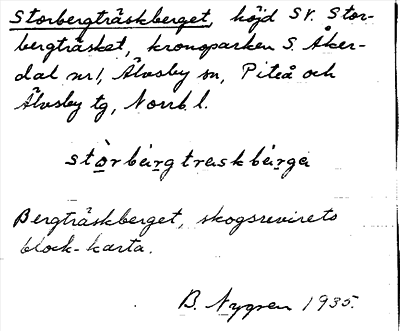 Storbergträskberget, höjd SV. Stor-
bergträsket, kronoparken S. Åker-
dal nr 1, Älvsby sn, Piteå och
Älvsby tg, Norrb. l.
stòrbärgtraskbärga
Bergträskberget, skogsrevirets
block-karta.
B. Nygren 1935.